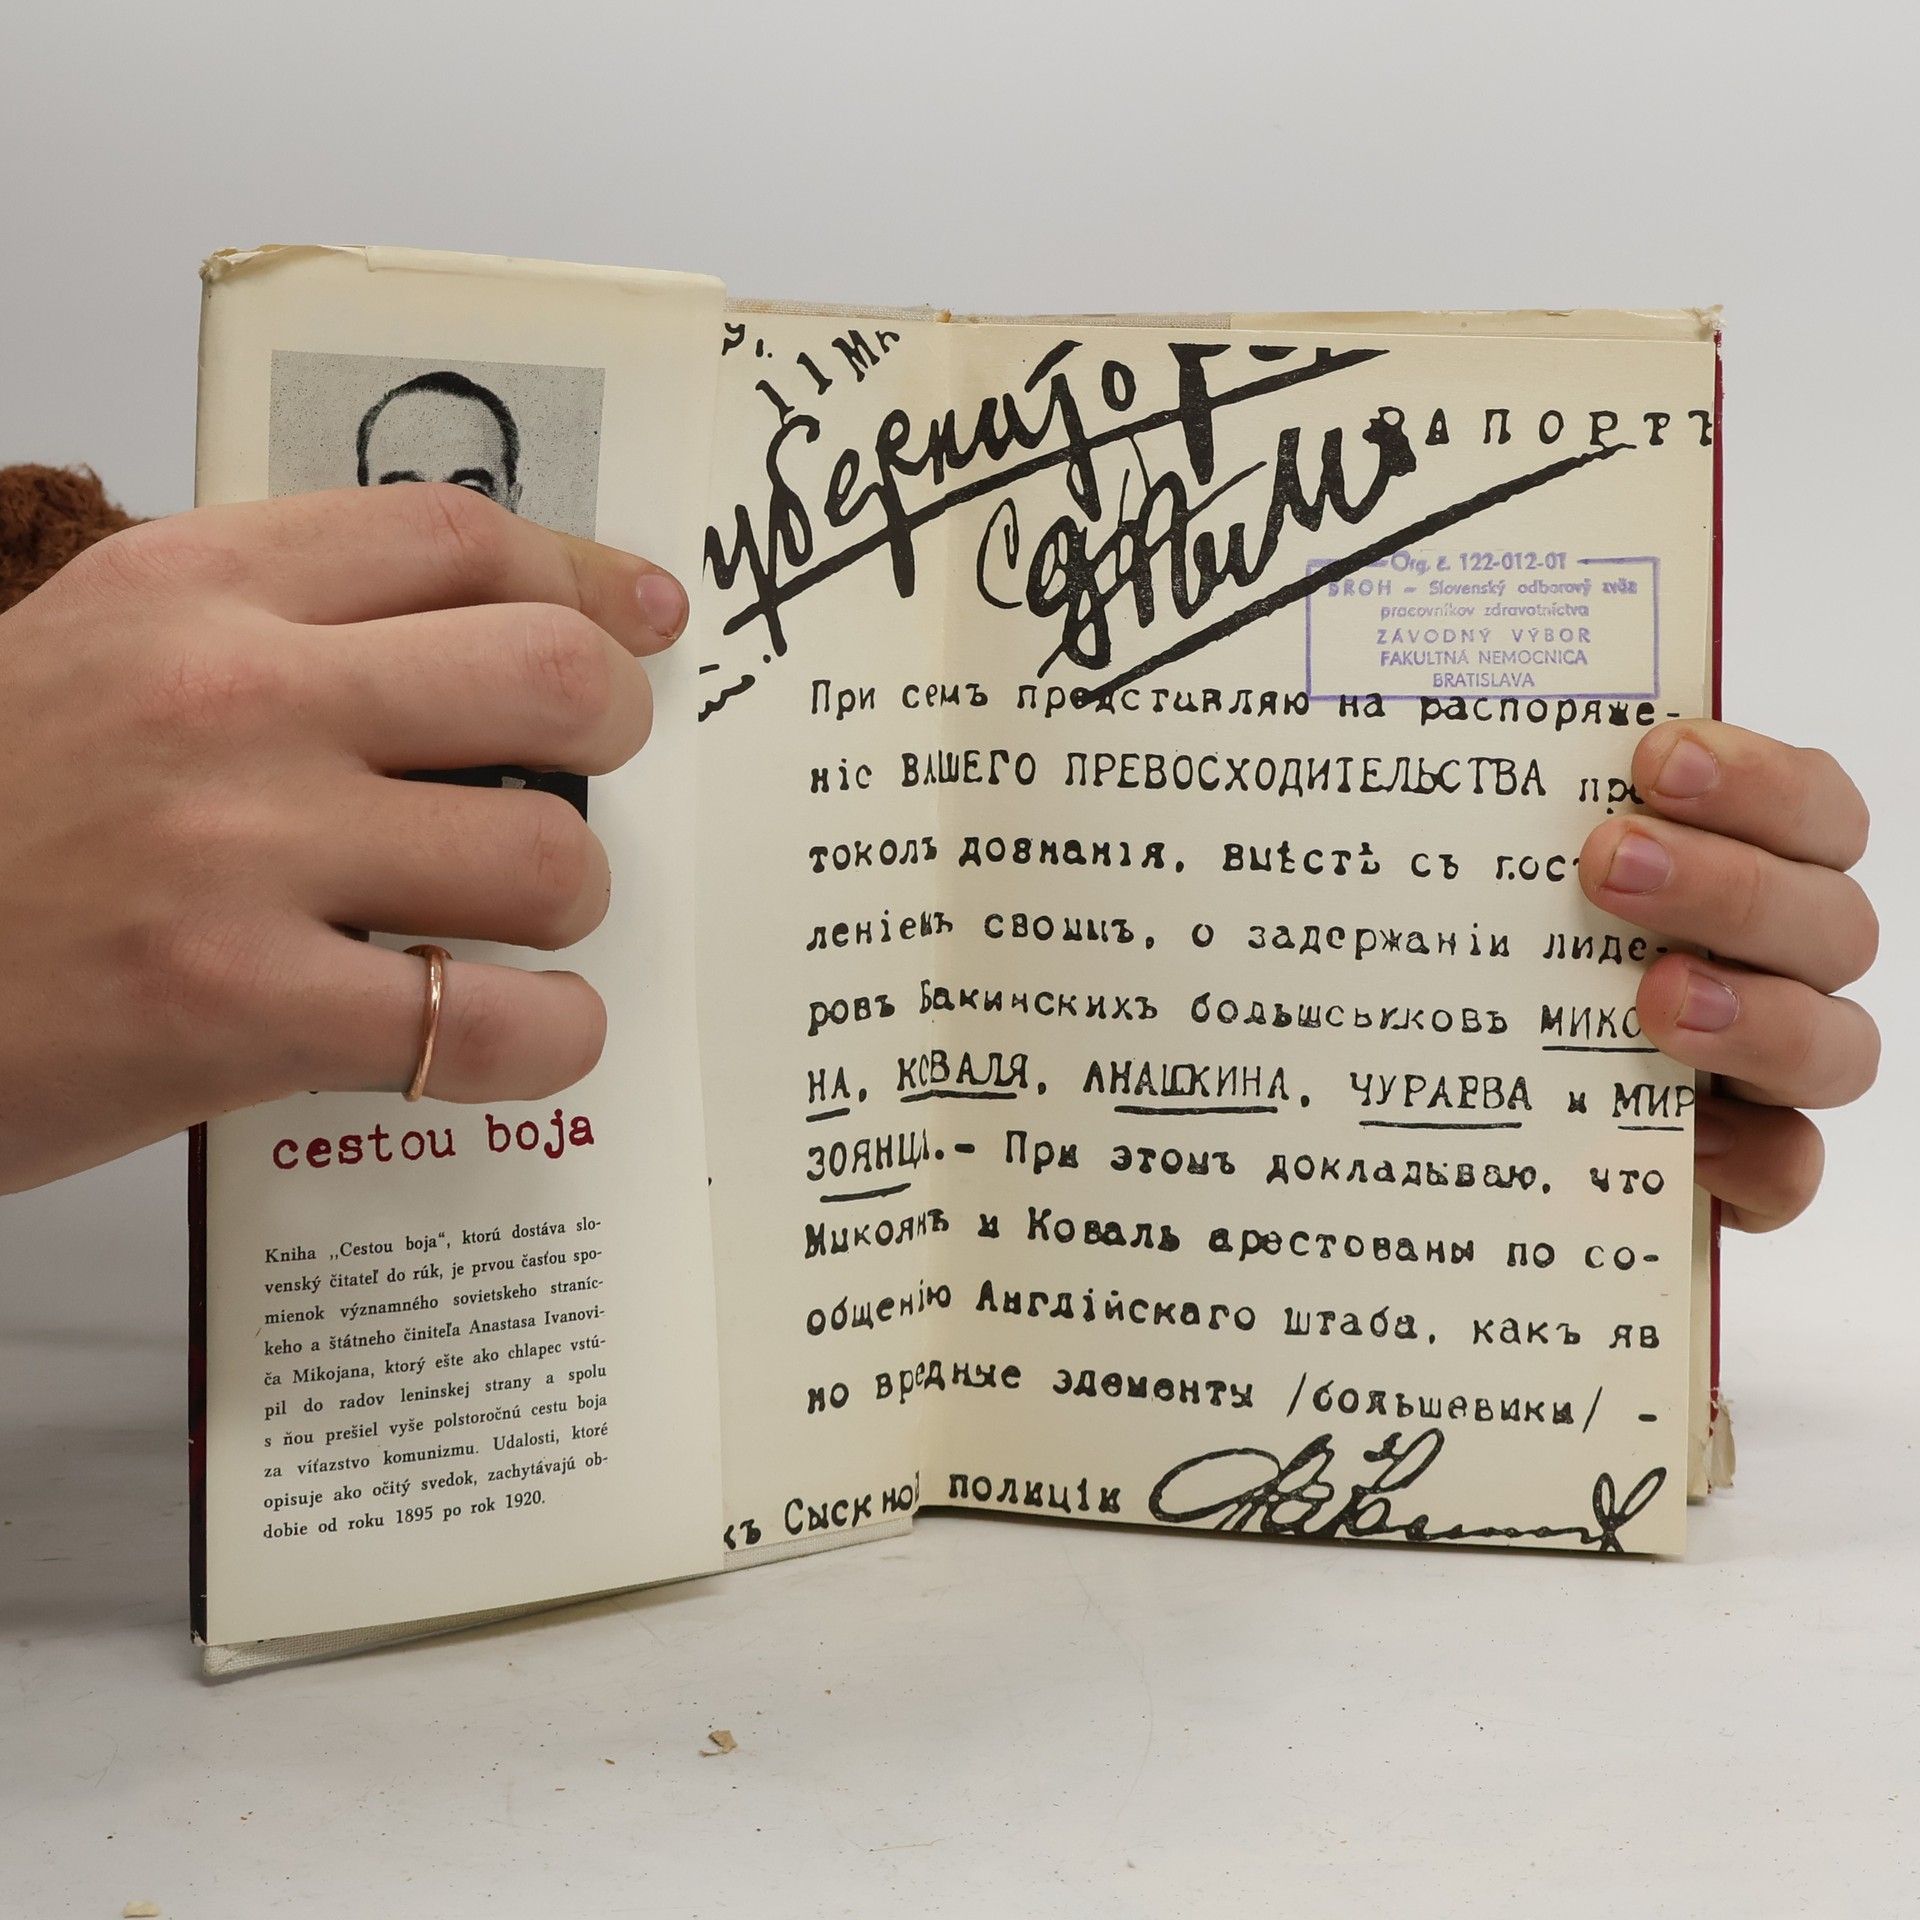 cestou boja
Kniha ,,Cestou boja“, ktorú dostáva slo-
venský čitateľ do rúk, je prvou časťou spo-
mienok významného sovietskeho straníc-
keho a štátneho činiteľa Anastasa Ivanovi-
ča Mikojana, ktorý ešte ako chlapec vstú-
pil do radov leninskej strany a spolu
s ňou prešiel vyše polstoročnú cestu boja
za víťazstvo komunizmu. Udalosti, ktoré
opisuje ako očitý svedok, zachytávajú ob-
dobie od roku 1895 po rok 1920.
11 Ма
РАПОРТЪ
Org. č. 122-012-01
SROH – Slovenský odborový zväz
pracovníkov zdravotníctva
ZÁVODNÝ VÝBOR
FAKULTNÁ NEMOCNICA
BRATISLAVA
При семъ представляю на распоряже-
ніе ВАШЕГО ПРЕВОСХОДИТЕЛЬСТВА
токолъ дознанія, вмѣстѣ съ
леніемъ своимъ, о задержаніи лиде-
ровъ Бакинскихъ большевиковъ
НА, КОВАЛЯ, АНАШКИНА, ЧУРАЕВА и МИР
ЗОЯНЦА.- При этомъ докладываю, что
Микоянъ и Коваль арестованы по со-
общенію Англійскаго штаба, какъ яв
но вредные элементы /большевики/ -
къ Сыскной полиціи